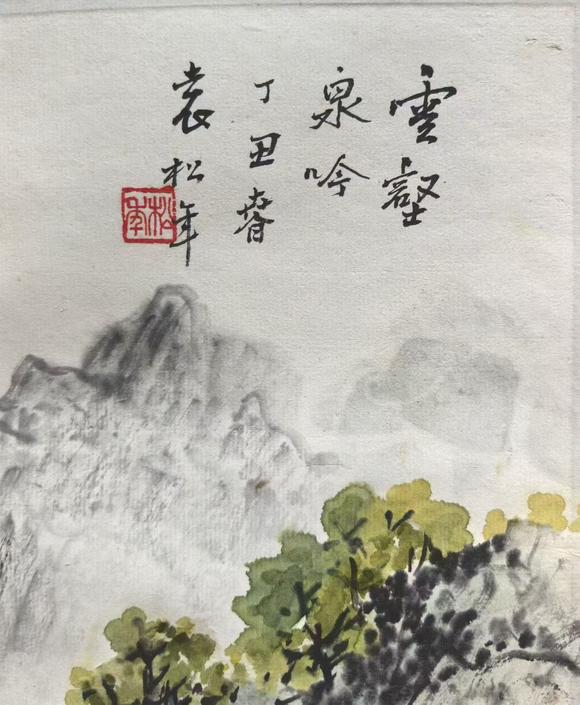 雲壑
泉吟
丁丑春
袁松年
松年